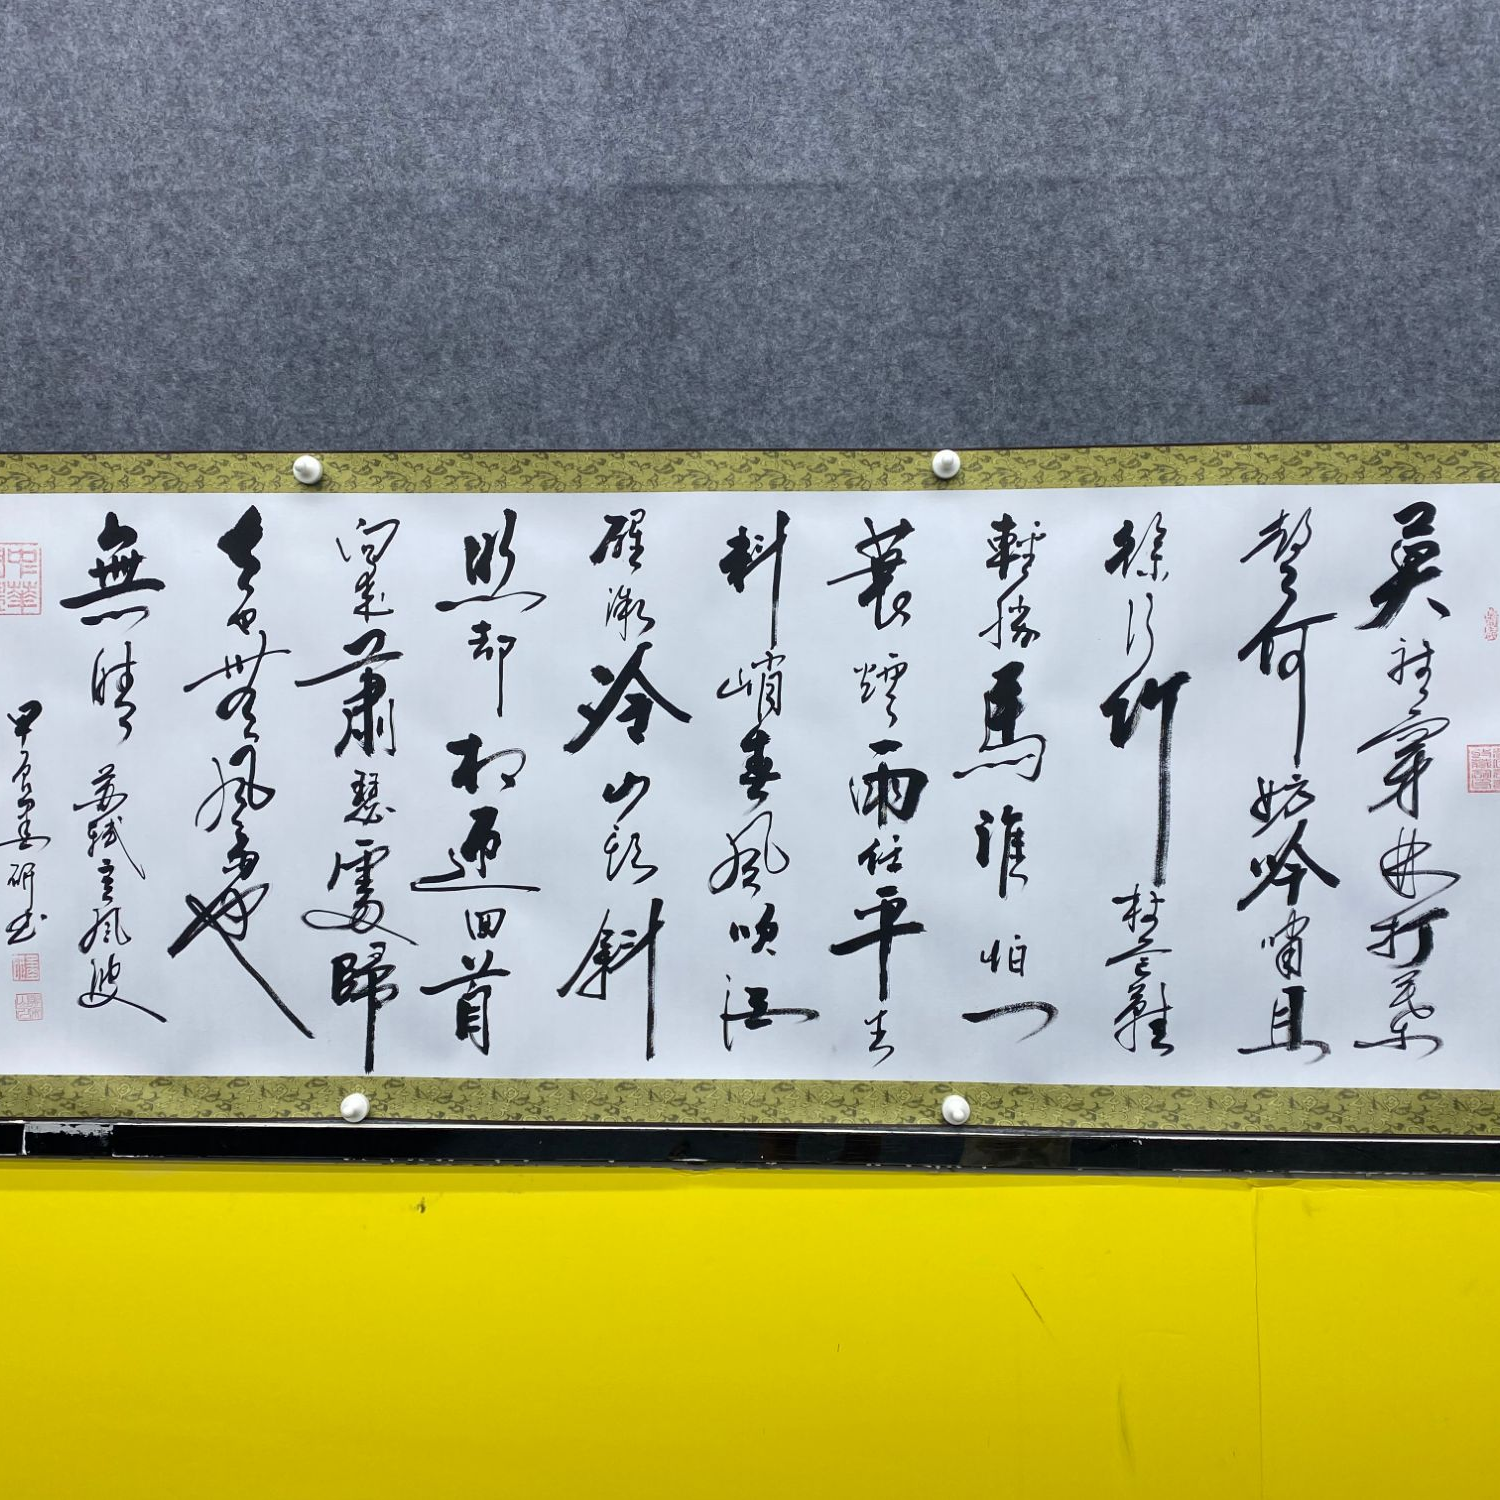 莫聽穿林打葉
聲何妨吟嘯且
徐行竹杖芒鞋
輕勝馬誰怕一
蓑煙雨任平生
料峭春風吹酒
醒微冷山頭斜
照却相迎回首
向來蕭瑟處歸
去也無風雨也
無晴 蘇軾定風波
甲辰 研书
中華